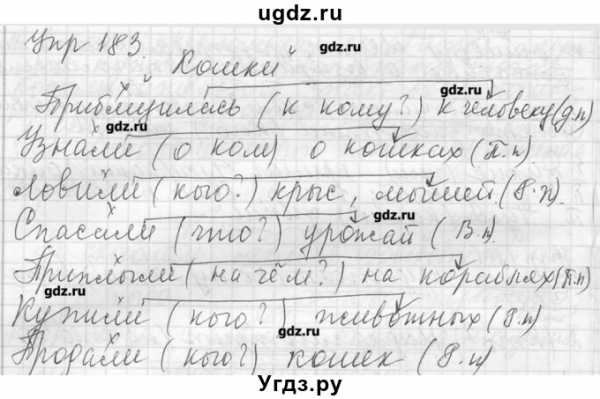 ugdz.ru
Упр 183
gdz.ru
"Кошки"
gdz.ru
Приблизилась (к кому?) к человеку (д.п)
gdz.ru
gdz.ru
Узнали (о ком) о кошках (П.п).
Ловили (кого?) крыс, мышей (Р.п).
gdz.ru
gdz.ru
Спасали (что?) урожай (В.п).
Приплыли (на чём?) на кораблях (п.п)
gdz.ru
gdz.ru
Купили (кого?) животных (Р.п)
gdz.ru
gdz.ru
Продали (кого?) кошек (Р.п)
Угдз.ру